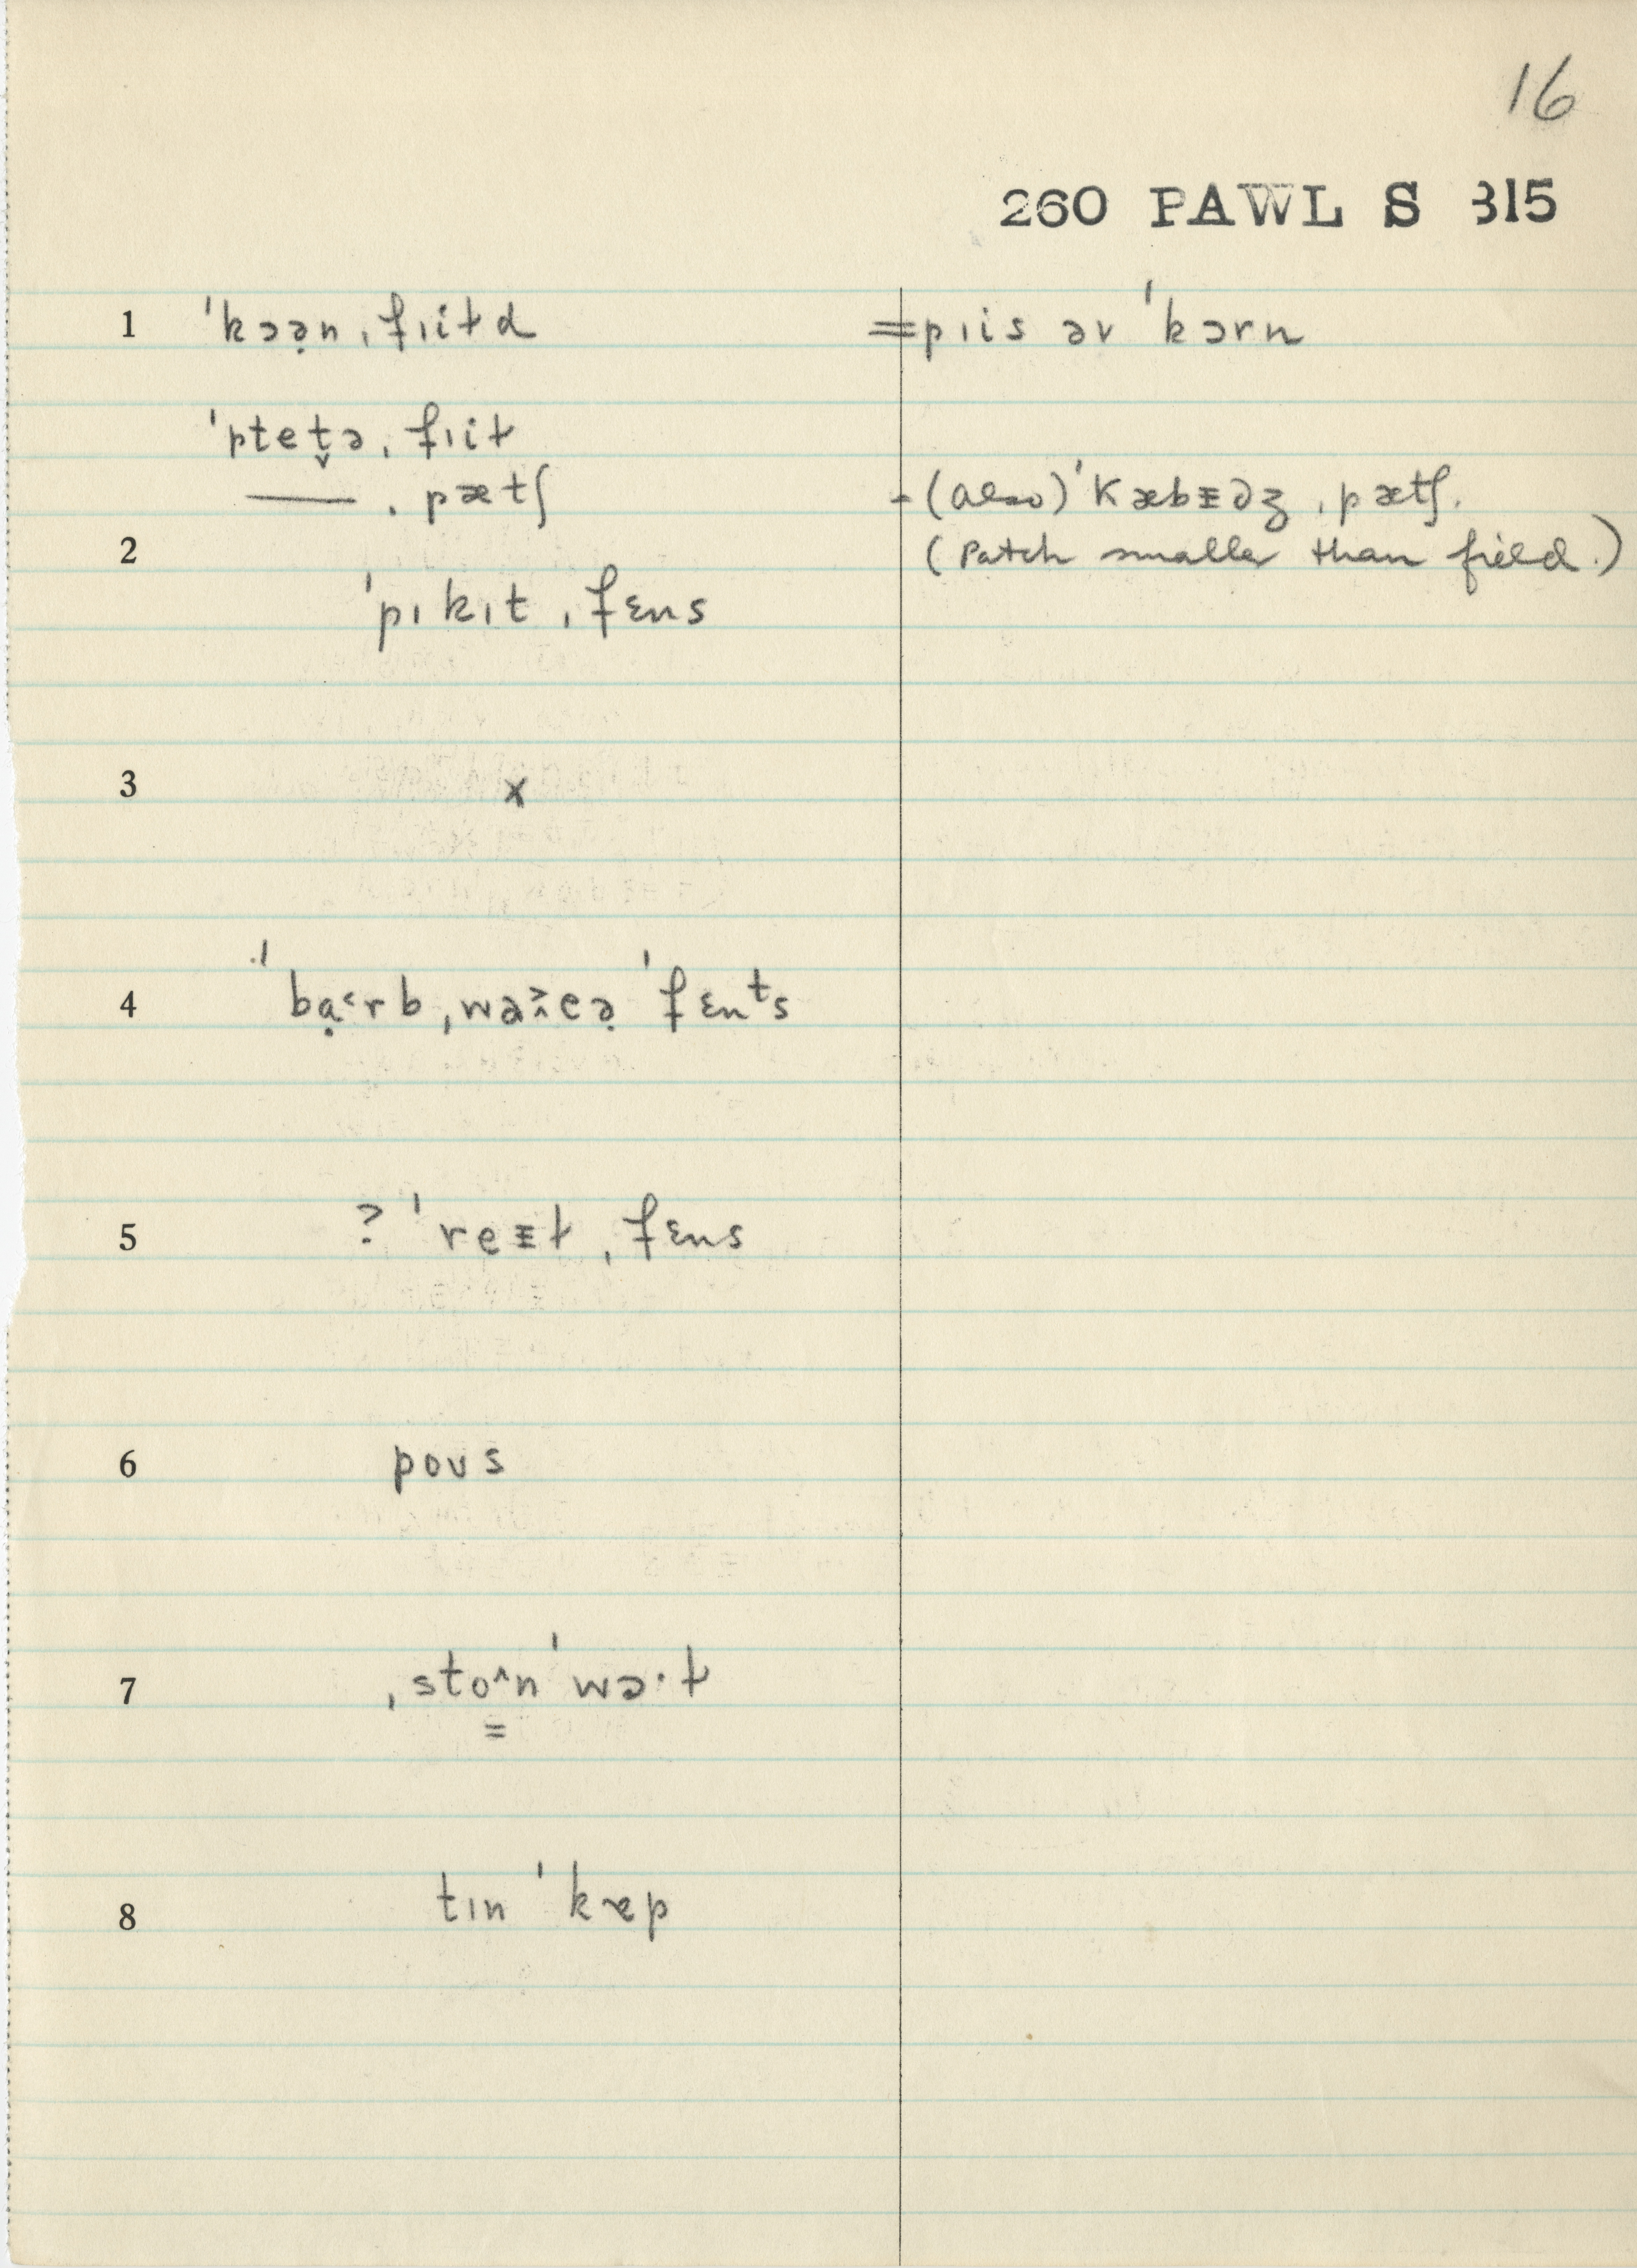 16
260 PAWL S 315
1 ˈkɔə̣n ˌfɪiɫd =pɪis əv ˈkɔrn
ˈptet̬ə ˌfɪiɫ
—— ˌpætʃ - (also) ˈkæbɪ̵dʒ ˌpætʃ.
2 (Patch smaller than field.)
ˈpɪkɪt ˌfɛns
3 x
4 ˈbạ˂rb ˌwaɪ̯eə̣ ˈfɛnᵗs
5 ? ˈreɪ̵ɫ ˌfɛns
6 poʊs
7 ˌsto̳˄n ˈwɔ·ɫ
8 tɪn ˈkæp